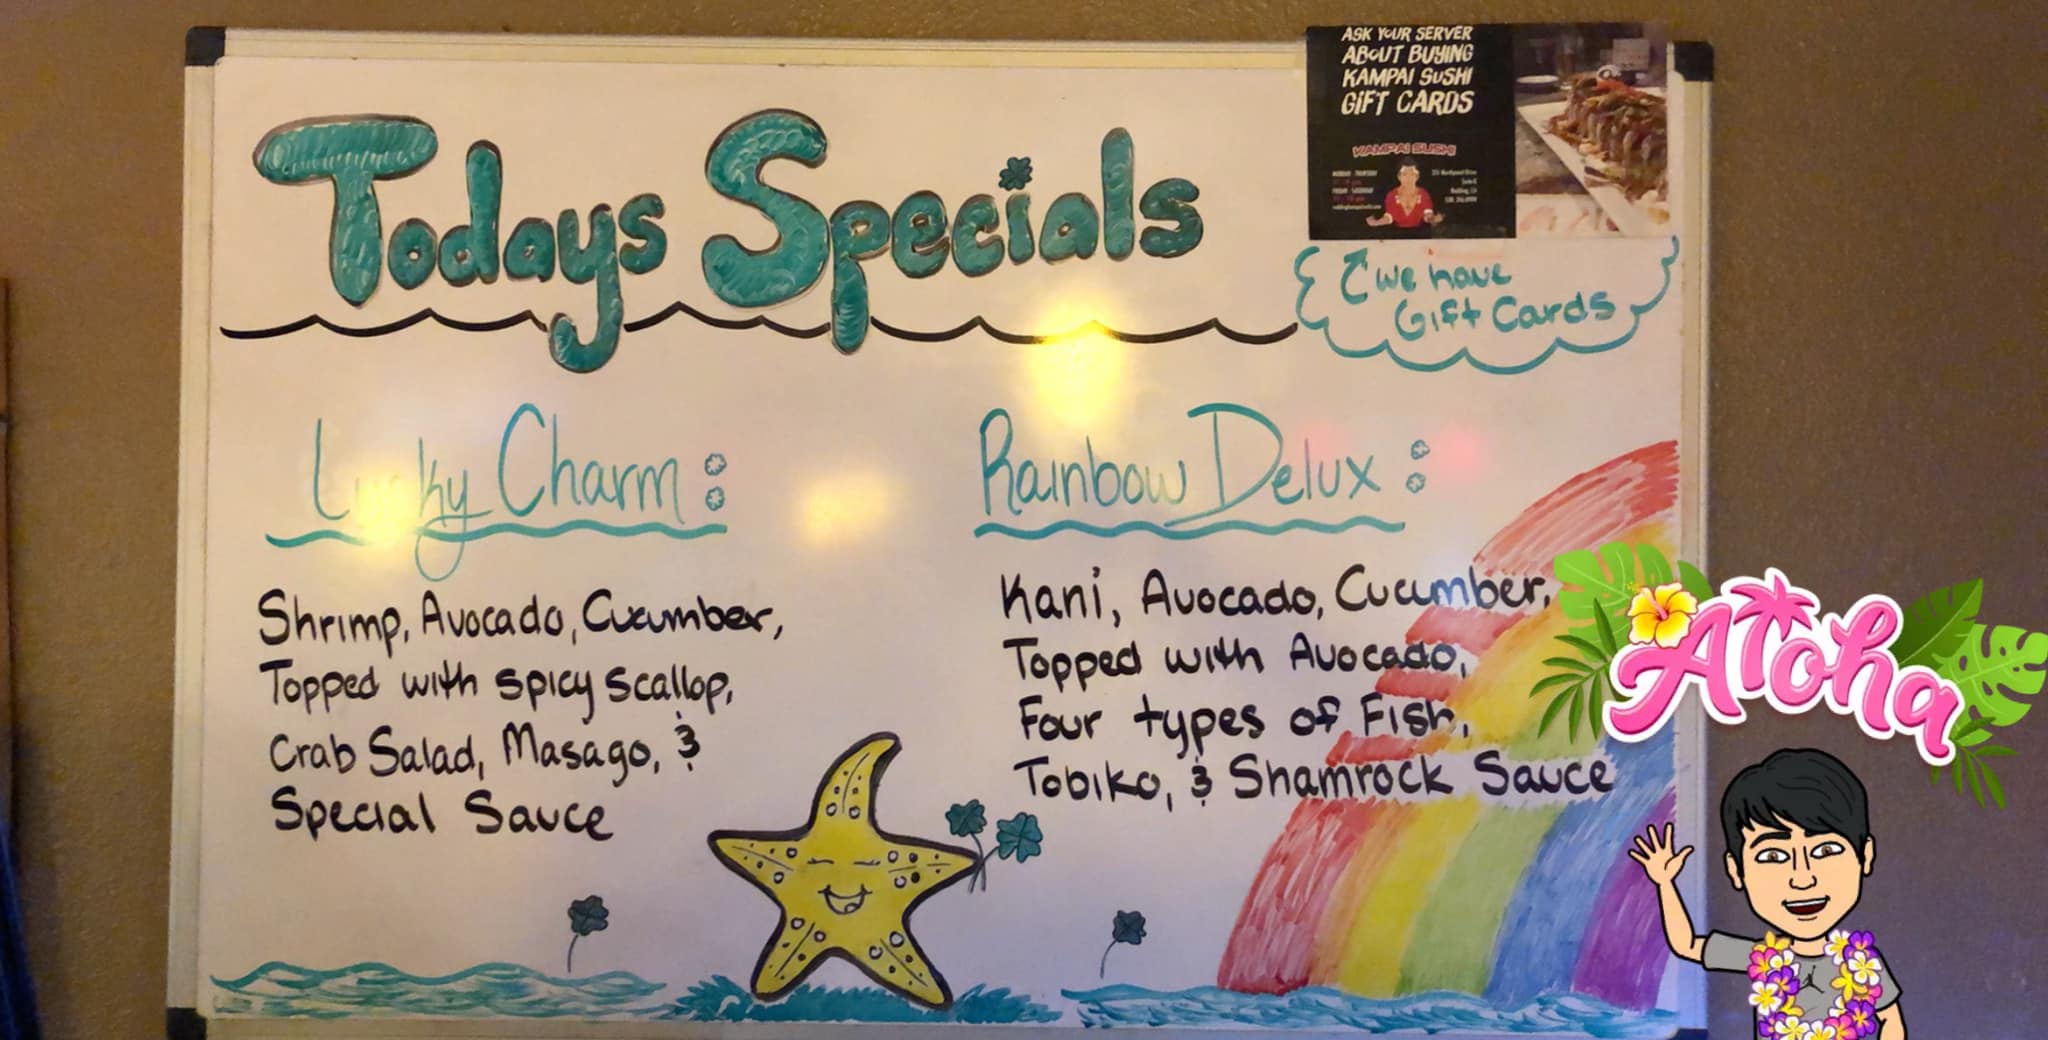 ASK YOUR SERVER
ABOUT BUYING
KAMPAI SUSHI
GIFT CARDS
KAMPAI SUSHI
Todays Specials
We have
Gift Cards
Lucky Charm:
Shrimp, Avocado, Cucumber,
Topped with spicy scallop,
Crab Salad, Masago, &
Special Sauce
Rainbow Delux:
Kani, Avocado, Cucumber,
Topped with Avocado,
Four types of Fish,
Tobiko, & Shamrock Sauce
Aloha